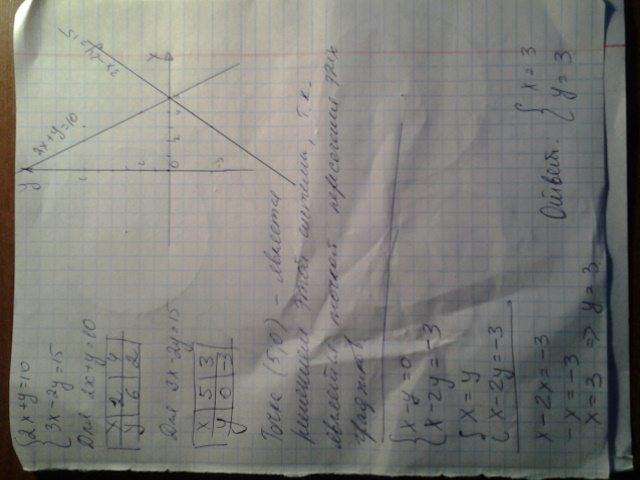 {2x+y=10
{3x-2y=15
Для 2x+y=10
x | 2 | 4
y | 6 | 2
Для 3x-2y=15
x | 5 | 3
y | 0 | -3
y
2x+y=10
x
0
Точка (5;0) - является
решением этой системы, т.к.
является точкой пересечения двух
графиков
{x-y=0
{x-2y=-3
{x=y
{x-2y=-3
x-2x=-3
-x=-3
x=3 => y=3
Ответ: {x=3
{y=3